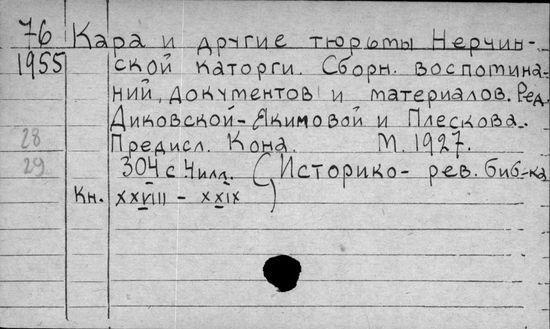 76 Кара и другие тюрьмы Нерчин-
1955 ской каторги. Сборн. воспомина-
ний, документов и материалов. Ред.
Диковской-Якимовой и Плескова.
28 Предисл. Кона. М. 1927.
29 304 с 4 илл. (Историко-рев. биб-ка
Кн. XXVIII - XXIX )